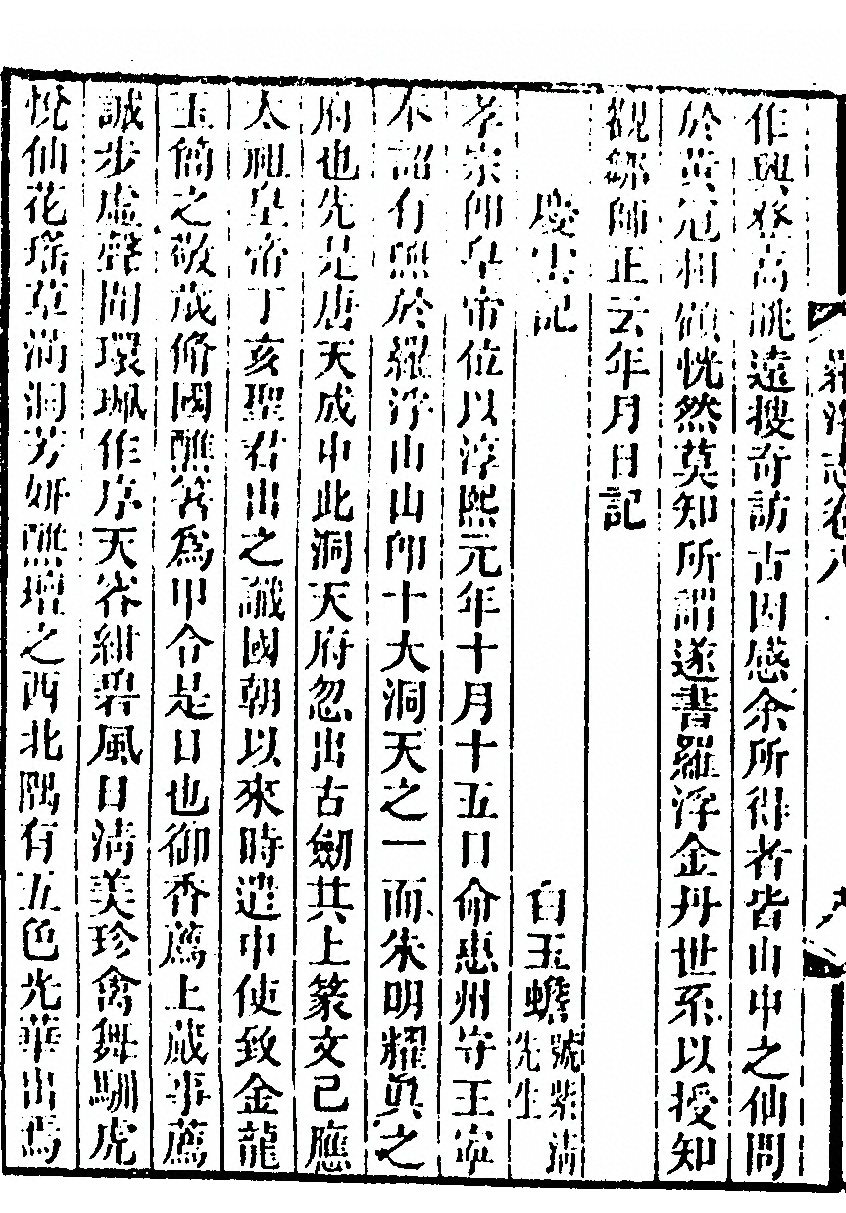 羅浮志卷八
作興登高眺遠搜奇訪古因感余所得者皆山中之仙問
於黃冠相顧恍然莫知所謂遂書羅浮金丹世系以授知
觀鄒師正云年月日記
慶雲記 白玉蟾號紫清先生
孝宗卽皇帝位以淳熙元年十月十五日命惠州守王寧
不詔有醮於羅浮山山卽十大洞天之一而朱明耀眞之
府也先是唐天成中此洞天府忽出古劒其上篆文已應
太祖皇帝丁亥聖君出之讖國朝以來時遣中使致金龍
玉簡之敬歲脩國醮著爲甲令是日也御香薦上蕆事薦
誠步虛聲間環珮作序天容紺碧風日淸美珍禽舞馴虎
悅仙花瑤草滿洞芳妍醮壇之西北隅有五色光華出焉